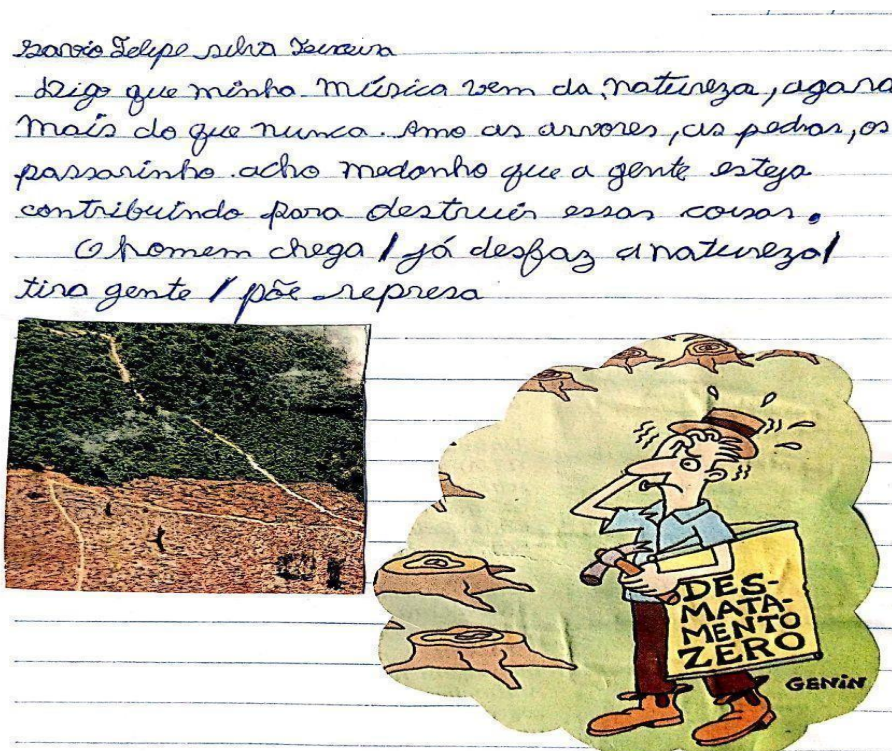 Felipe silva Teixeira
digo que minha música vem da natureza, agora
mais do que nunca. Amo as arvores, as pedras, os
passarinho. acho medonho que a gente esteja
contribuindo para destruir essas coisas.
O homem chega / já desfaz a natureza /
tira gente / põe represa
DES-
MATA-
MENTO
ZERO
GENiN